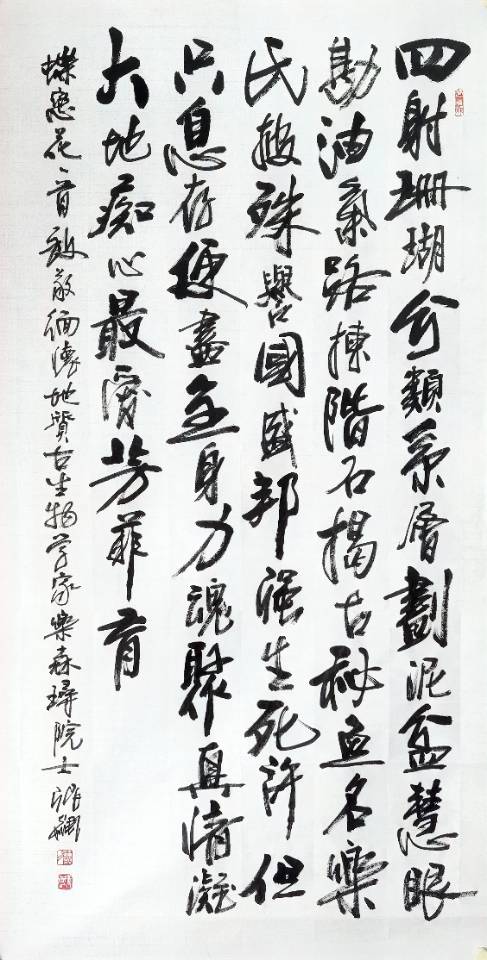 四射珊瑚分類系層劃泥盆慧眼
勘油氣路揀階石揭古秘魚名樂
氏殊譽國盛邦强生死許但
只息存便盡全身力魂聚真情凝
大地痴心最愛芳菲育
蝶恋花一首致敬緬懷地質古生物学家樂森璕院士